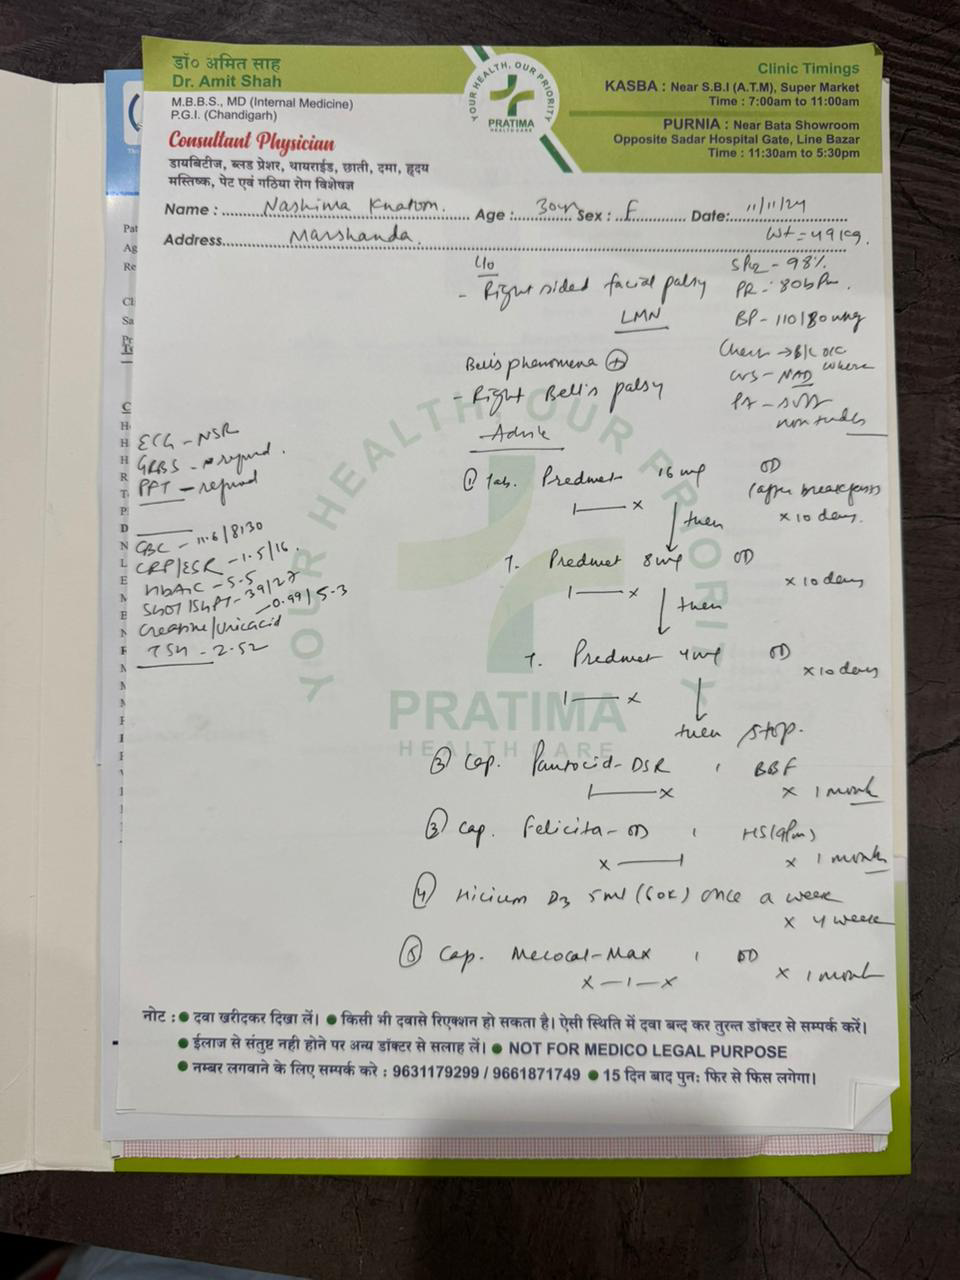 डॉ० अमित साह
Dr. Amit Shah
M.B.B.S., MD (Internal Medicine)
P.G.I. (Chandigarh)
Consultant Physician
डायबिटीज, ब्लड प्रेशर, थायराईड, छाती, दमा, हृदय
मस्तिष्क, पेट एवं गठिया रोग विशेषज्ञ
YOUR HEALTH, OUR PRIORITY
PRATIMA
HEALTH CARE
Clinic Timings
KASBA : Near S.B.I (A.T.M), Super Market
Time : 7:00am to 11:00am
PURNIA : Near Bata Showroom
Opposite Sadar Hospital Gate, Line Bazar
Time : 11:30am to 5:30pm
Name : Nashima Khatom Age : 30yr Sex : F Date: 11/11/24
Address Marshanda Wt - 49 kg.
C/o
- Right sided facial palsy
LMN
Bell's phenomena +
- Right Bell's palsy
SPO2 - 98%
PR - 80bPm
BP - 110/80 mmHg
Chest → B/L
CVS - NAD
P/A - Soft
non tender
ECG - NSR
GRBS -
PPT -
CBC - 11.6/8130
CRP/ESR - 1.5/16.
HbAIC - 5.5
SGOT/SGPT - 39/27
Creatine/Uricacid - 0.99/5.3
TSH - 2.52
Advice
① Tab. Predmet 16 mg OD
(after breakfast)
I —— x x 10 days
↓ then
T. Predmet 8 mg OD
I —— x x 10 days
↓ then
T. Predmet 4 mg OD
I —— x x 10 days
↓
then stop.
② Cap. Pantocid-DSR , BBF
I —— x x 1 month
③ Cap. Felicita-OD , HS (9Pm)
x —— I x 1 month
④ D3 5ml (60K) once a week
x 4 week
⑤ Cap. Mecocal-Max , OD
x — I — x x 1 month
YOUR HEALTH, OUR PRIORITY
PRATIMA
HEALTH CARE
नोट : ● दवा खरीदकर दिखा लें। ● किसी भी दवासे रिएक्शन हो सकता है। ऐसी स्थिति में दवा बन्द कर तुरन्त डॉक्टर से सम्पर्क करें।
● ईलाज से संतुष्ट नही होने पर अन्य डॉक्टर से सलाह लें। ● NOT FOR MEDICO LEGAL PURPOSE
● नम्बर लगवाने के लिए सम्पर्क करे : 9631179299 / 9661871749 ● 15 दिन बाद पुनः फिर से फिस लगेगा।